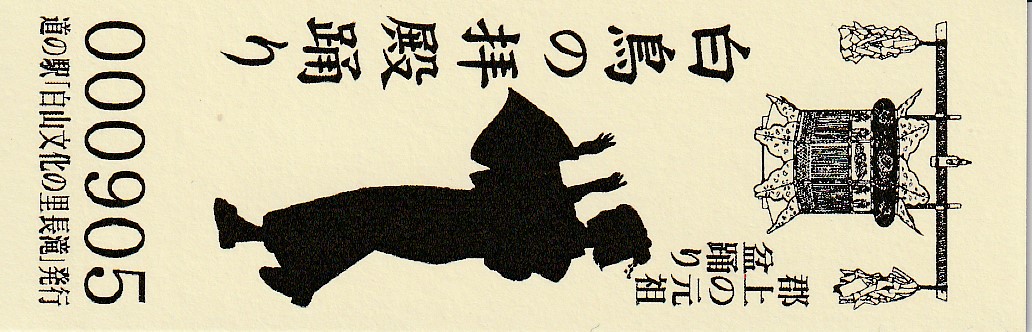 郡上の元祖
盆踊り
白鳥の拝殿踊り
000905
道の駅「白山文化の里長滝」発行